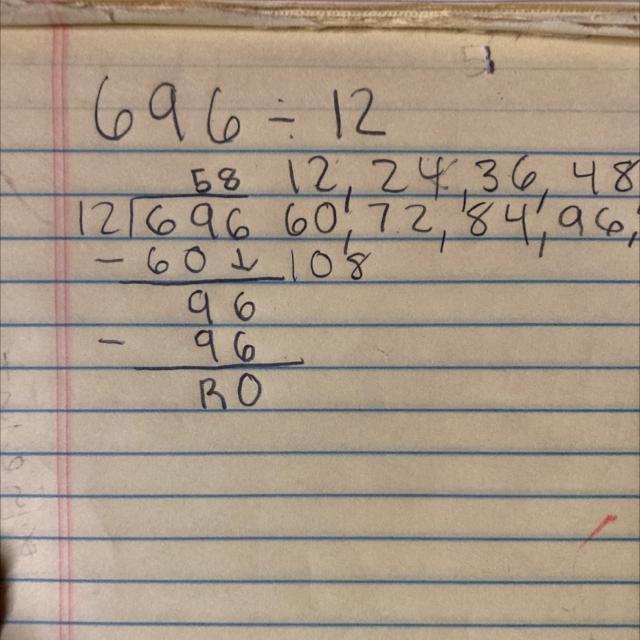 5
696 ÷ 12
58 12, 24, 36, 48
12)696 60, 72, 84, 96,
- 60↓ 108
96
- 96
R0